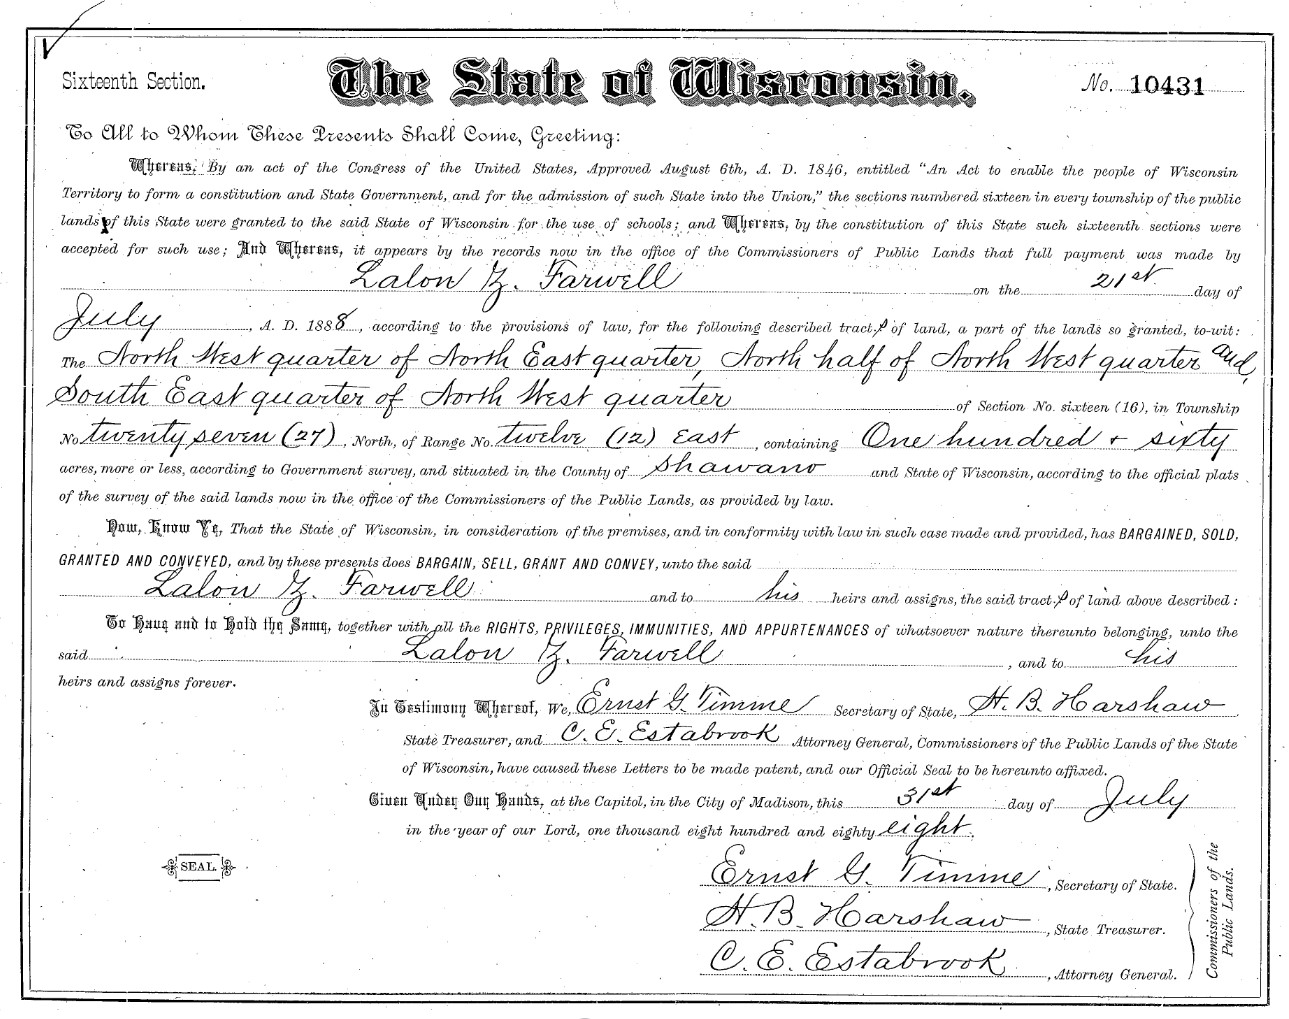 Sixteenth Section. The State of Wisconsin. No. 10431
To All to Whom These Presents Shall Come, Greeting:
Whereas, By an act of the Congress of the United States, Approved August 6th, A. D. 1846, entitled "An Act to enable the people of Wisconsin
Territory to form a constitution and State Government, and for the admission of such State into the Union," the sections numbered sixteen in every township of the public
lands of this State were granted to the said State of Wisconsin for the use of schools; and Whereas, by the constitution of this State such sixteenth sections were
accepted for such use; And Whereas, it appears by the records now in the office of the Commissioners of Public Lands that full payment was made by
Lalon Z. Farwell on the 21st day of
July, A. D. 1888, according to the provisions of law, for the following described tract of land, a part of the lands so granted, to-wit:
The North West quarter of North East quarter, North half of North West quarter and,
South East quarter of North West quarter of Section No. sixteen (16), in Township
No. twenty seven (27), North, of Range No. twelve (12) East, containing One hundred + sixty
acres, more or less, according to Government survey, and situated in the County of Shawano and State of Wisconsin, according to the official plats
of the survey of the said lands now in the office of the Commissioners of the Public Lands, as provided by law.
Now, Know Ye, That the State of Wisconsin, in consideration of the premises, and in conformity with law in such case made and provided, has BARGAINED, SOLD,
GRANTED AND CONVEYED, and by these presents does BARGAIN, SELL, GRANT AND CONVEY, unto the said
Lalon Z. Farwell and to his heirs and assigns, the said tract of land above described:
To Have and to Hold the Same, together with all the RIGHTS, PRIVILEGES, IMMUNITIES, AND APPURTENANCES of whatsoever nature thereunto belonging, unto the
said Lalon Z. Farwell, and to his
heirs and assigns forever.
In Testimony Whereof, We, Ernst G. Timme Secretary of State, H. B. Harshaw
State Treasurer, and C. E. Estabrook Attorney General, Commissioners of the Public Lands of the State
of Wisconsin, have caused these Letters to be made patent, and our Official Seal to be hereunto affixed.
Given Under Our Hands, at the Capitol, in the City of Madison, this 31st day of July
in the year of our Lord, one thousand eight hundred and eighty eight.
SEAL.
Ernst G. Timme, Secretary of State.
H. B. Harshaw, State Treasurer.
C. E. Estabrook, Attorney General.
Commissioners of the
Public Lands.